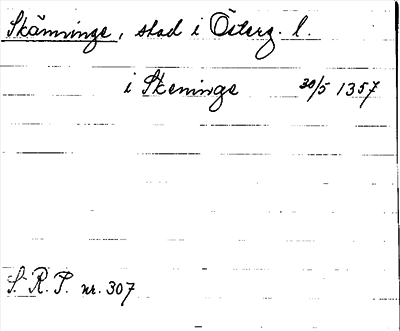 Skänninge, stad i Österg. l.
i Skeninge 30/5 1357
S. R. P. nr. 307